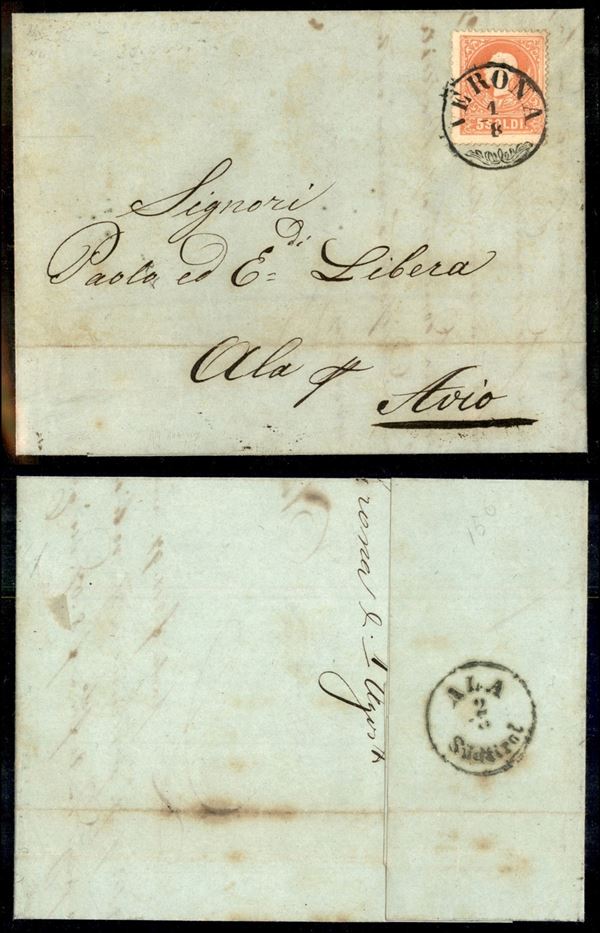 VERONA
1
8
5 SOLDI
Signori
Paolo ed E.di Libera
Ala p
Avio
150
Verona li 1 Agosto
ALA
2
8
Südtirol